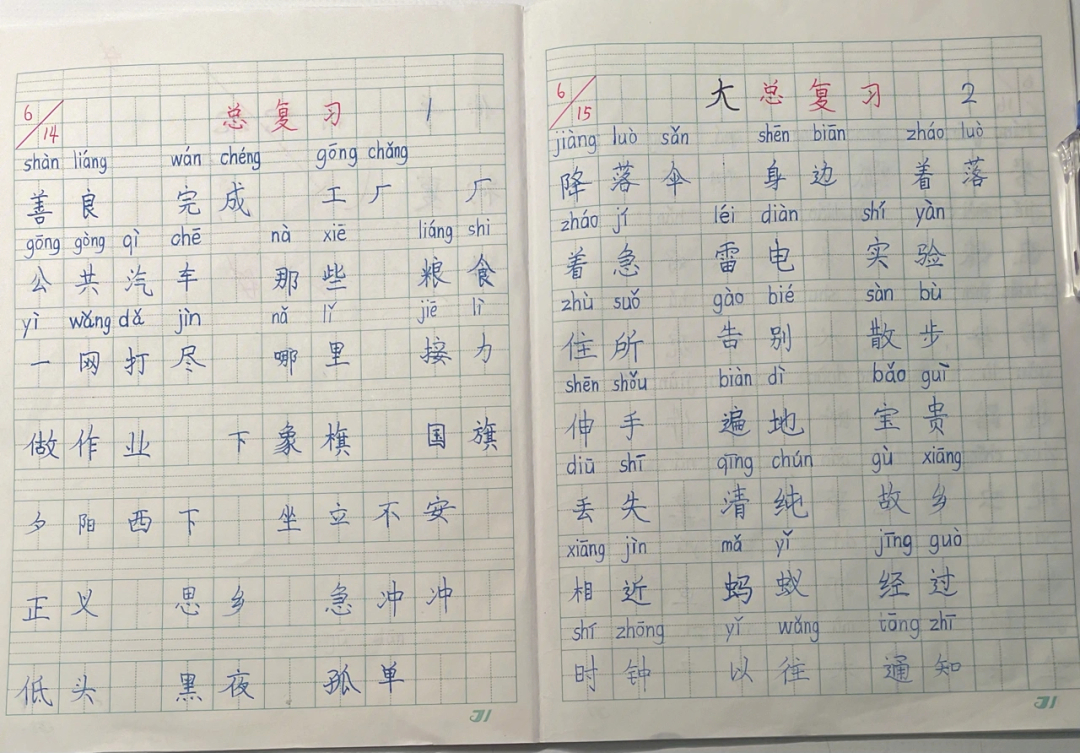 6/14 总复习 1
shàn liáng wán chéng gōng chǎng
善良 完成 工厂 厂
gōng gòng qì chē nà xiē liáng shi
公共汽车 那些 粮食
yì wǎng dǎ jìn nǎ lǐ jiē lì
一网打尽 哪里 接力
做作业 下象棋 国旗
夕阳西下 坐立不安
正义 思乡 急冲冲
低头 黑夜 孤单
6/15 大总复习 2
jiàng luò sǎn shēn biān zháo luò
降落伞 身边 着落
zháo jí léi diàn shí yàn
着急 雷电 实验
zhù suǒ gào bié sàn bù
住所 告别 散步
shēn shǒu biàn dì bǎo guì
伸手 遍地 宝贵
diū shī qīng chún gù xiāng
丢失 清纯 故乡
xiāng jìn mǎ yǐ jīng guò
相近 蚂蚁 经过
shí zhōng yǐ wǎng tōng zhī
时钟 以往 通知